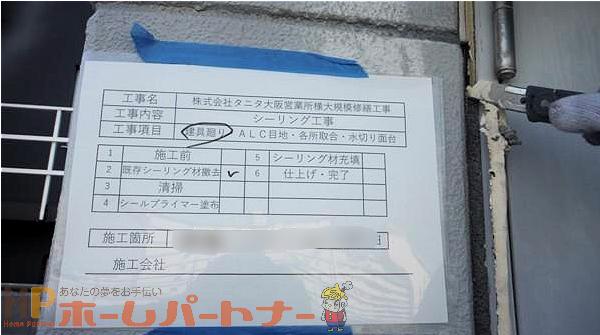 工事名 株式会社タニタ大阪営業所様大規模修繕工事
工事内容 シーリング工事
工事項目 建具廻り・ALC目地・各所取合・水切り面台
1 施工前 5 シーリング材充填
2 既存シーリング材撤去 ✓ 6 仕上げ・完了
3 清掃
4 シールプライマー塗布
施工箇所
施工会社
あなたの夢をお手伝い
HP ホームパートナー